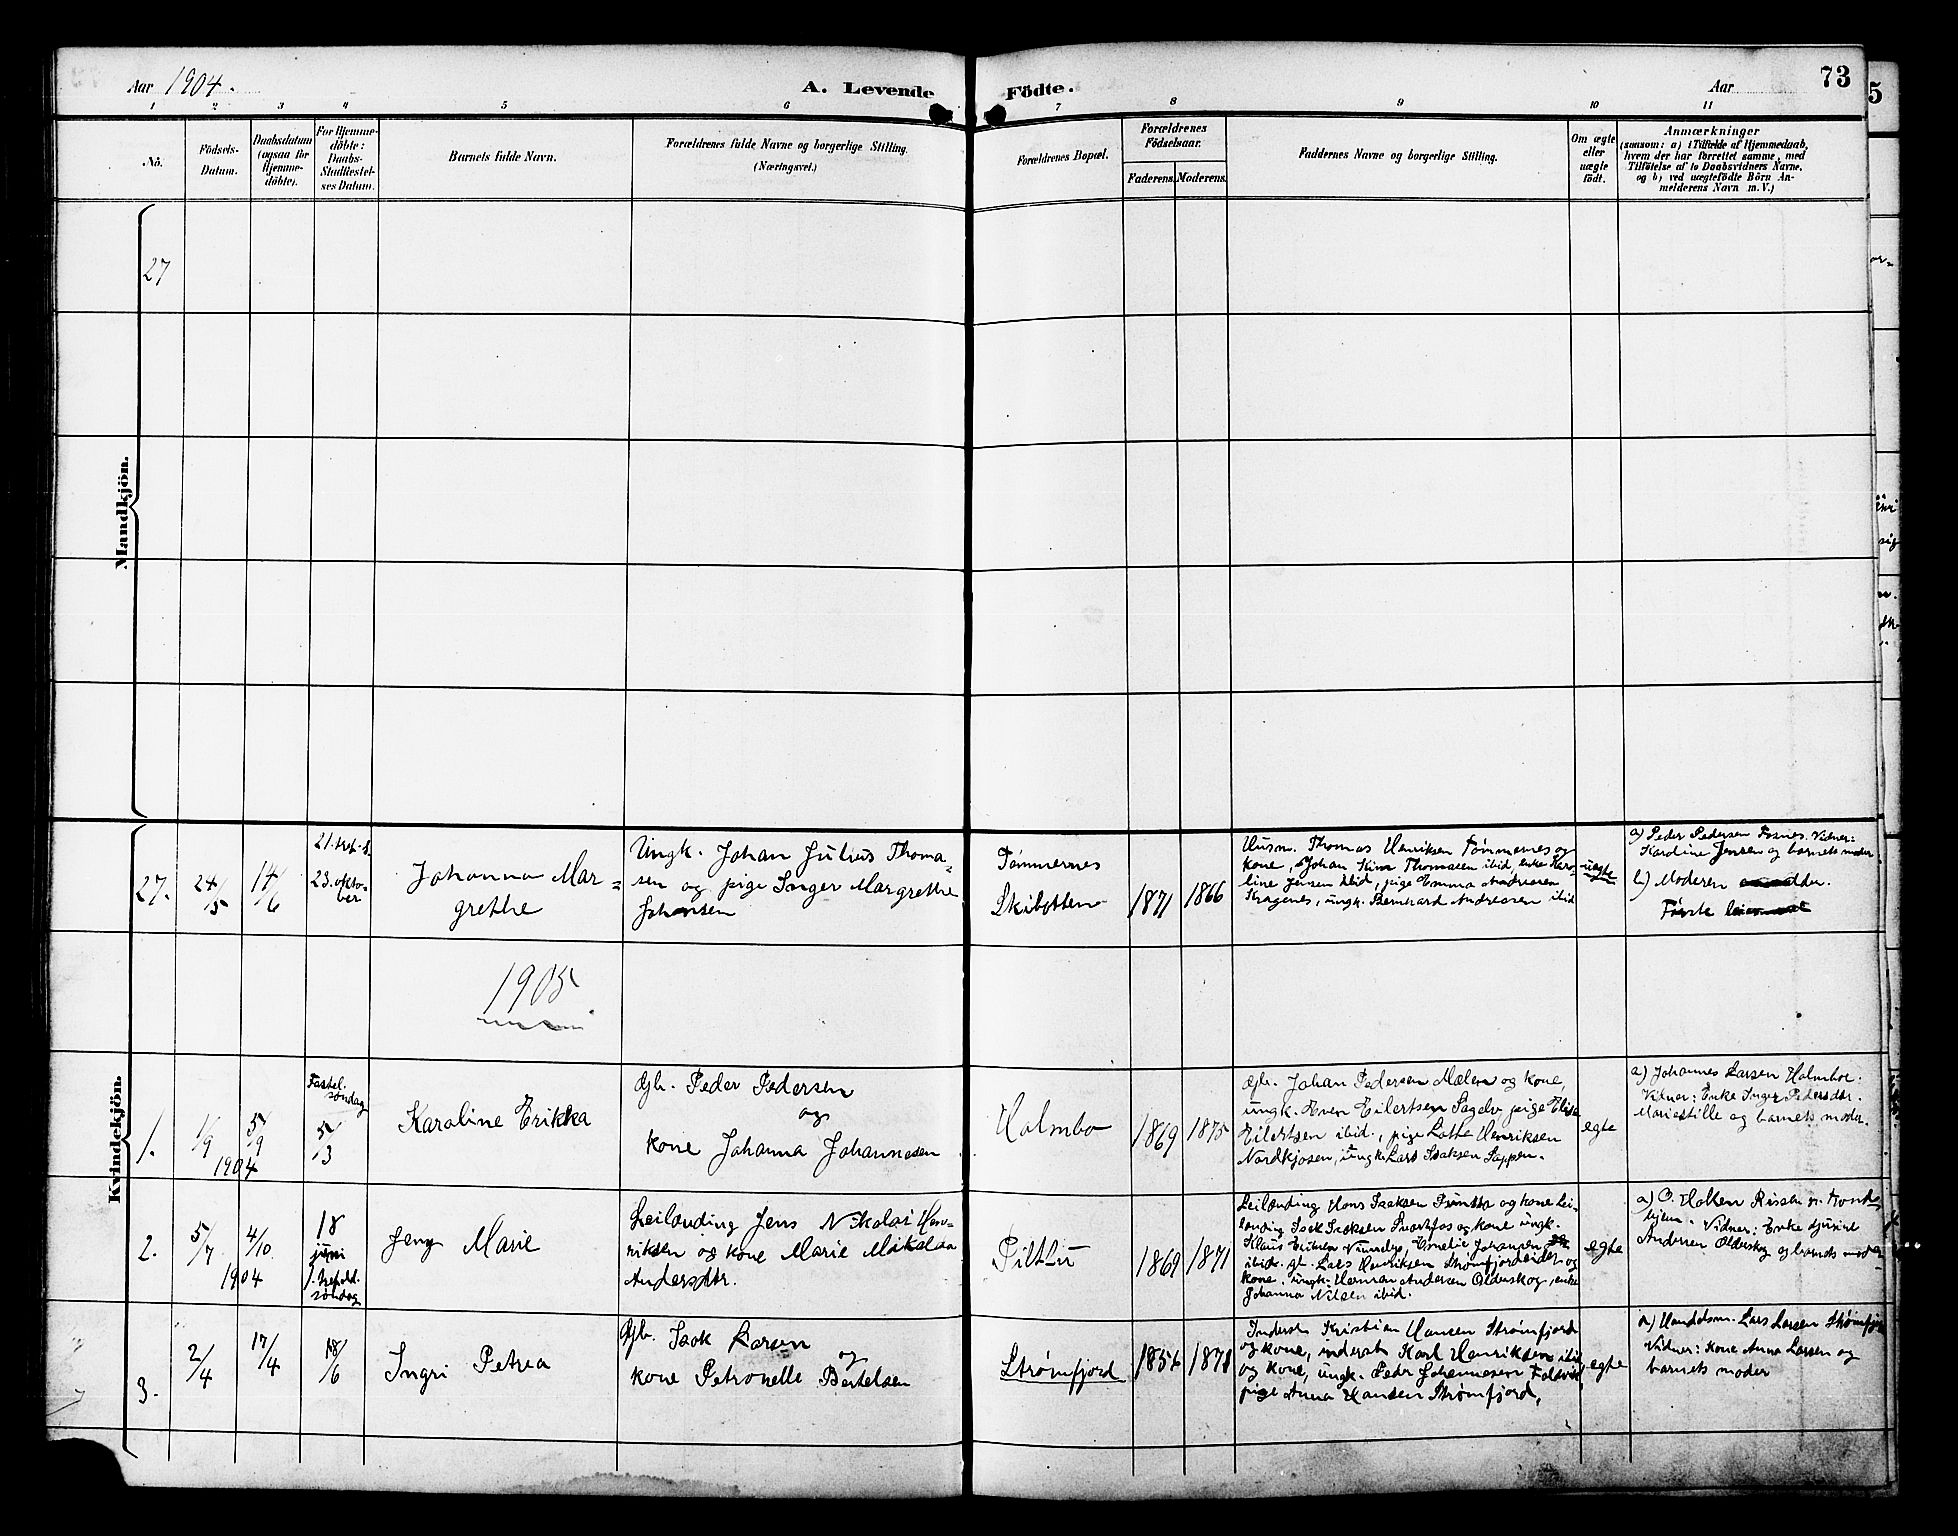 Aar 1904.
A. Levende Födte.
Aar
73
1 2 3 4 5 6 7 8 9 10 11
No.
Födsels-
Datum.
Daabsdatum
(ogsaa for
Hjemme-
döbte).
For Hjemme-
döbte:
Daabs-
Stadfæstel-
ses Datum.
Barnets fulde Navn.
Forældrenes fulde Navne og borgerlige Stilling.
(Næringsvei.)
Forældrenes Bopæl.
Forældrenes
Födselsaar.
Faderens. Moderens.
Faddernes Navne og borgerlige Stilling.
Om ægte
eller
uægte
födt.
Anmærkninger
(saasom: a) i Tilfælde af Hjemmedaab,
hvem der har forrettet samme, med
Tilföielse af to Daabsvidners Navne,
og b) ved uægtefödte Börn An-
melderens Navn m. V.)
Mandkjön.
27
Kvindekjön.
27.
24/5
14/6
21.
23. okto-
ber
Johanna Mar=
grethe
Ungk. Johan Julius Thoma=
sen og pige Inger Margrethe
Johansen
Tømmernes
Skibotten
1871
1866
Husm. Thomas Henriksen Tømmernes og
kone, Johan Thomasen ibid, enke Karo-
line Jensen ibid, pige Emma Andreasen
Skragenes, ungk. Bernhard Andreasen ibid
uegte
a) Peder Pedersen Fosnes. Vidner:
Kardine Jensen og barnets moder
b) Moderen
Første
1905
1.
1/9
5/9
1904
Fastel.
søndag
5/3
Karoline Erikka
Gb. Peder Pedersen
og
kone Johanna Johannesen
Holmbo
1869
1875
Gb. Johan Pedersen Malen og kone,
ungk. Even Eilertsen Sagelv pige Elise
Eilertsen ibid., pige Lotte Henriksen
Nordkjosen, ungk. Lars Isaksen Sappen.
egte
a) Johannes Larsen Holmboe:
Vidner: Enke Inger Pedersdtr.
Mariestille og barnets moder.
2.
5/7
4/10.
1904
18
juni
søndag
Jeny Marie
Leilænding Jens Nikolai Hen-
riksen og kone Marie Mikalaa
Andersdtr.
Piltun
1869
1871
Leilænding Hans Isaksen og kone Lei-
lænding Isak Isaksen Svartfos og kone ungk.
Klaus Emelie Johansen
ibid. gb. Lars Henriksen Strømfjordeidet og
kone, ungk. Herman Andersen Olderskog, enke
Johanna Nilsen ibid.
egte
a) O. Holten Rissen pr. Trond-
hjem. Vidner: Enke
Andersen Olderskog og barnets moder
3.
2/4
17/4
18/6
Ingri Petrea
Gb. Isak Larsen
og
kone Petronelle Bertelsen
Strømfjord
1878
Inderst Kristian Hansen Strømfjord
og kone, inderst Karl Henriksen ibid
og kone, ungk. Peder Johannesen
pige Anna Hansen Strømfjord,
egte
a) Handelsm. Lars Larsen Strømfjord
Vidner: Kone Anna Larsen og
barnets moder